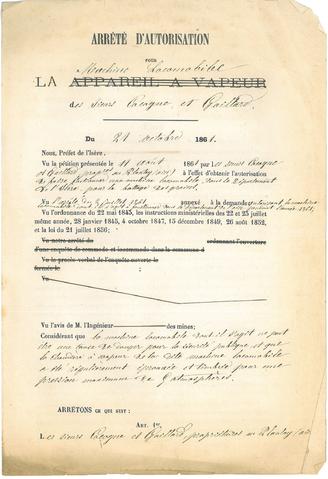 ARRÊTÉ D'AUTORISATION
POUR
Machine Locomobile
LA APPAREIL A VAPEUR
des sieurs et Gaillard.
Du 21 octobre 1861.
Nous, Préfet de l'Isère.
Vu la pétition présentée le 11 août 1861 par les sieurs
et Gaillard à l'effet d'obtenir l'autorisation
de faire une machine locomobile dans le département
de l'Isère, pour le battage des grains.
Vu annexé à la demande
Vu l'ordonnance du 22 mai 1843, les instructions ministérielles des 22 et 25 juillet
même année, 28 janvier 1845, 4 octobre 1847, 15 décembre 1849, 26 août 1852,
et la loi du 21 juillet 1856;
Vu notre arrêté du ordonnant l'ouverture
d'une enquête de commodo et incommodo dans la commune d
Vu le procès-verbal de l'enquête ouverte le
fermée le
Vu
Vu l'avis de M. l'Ingénieur des mines;
Considérant que la machine locomobile dont il s'agit ne peut
être une cause de danger pour la sûreté publique et que
la chaudière à vapeur de la dite machine locomobile
a été régulièrement éprouvée et timbrée pour une
pression maximum de 6 atmosphères.
ARRÊTONS CE QUI SUIT :
ART. 1er.
Les sieurs et Gaillard, propriétaires au